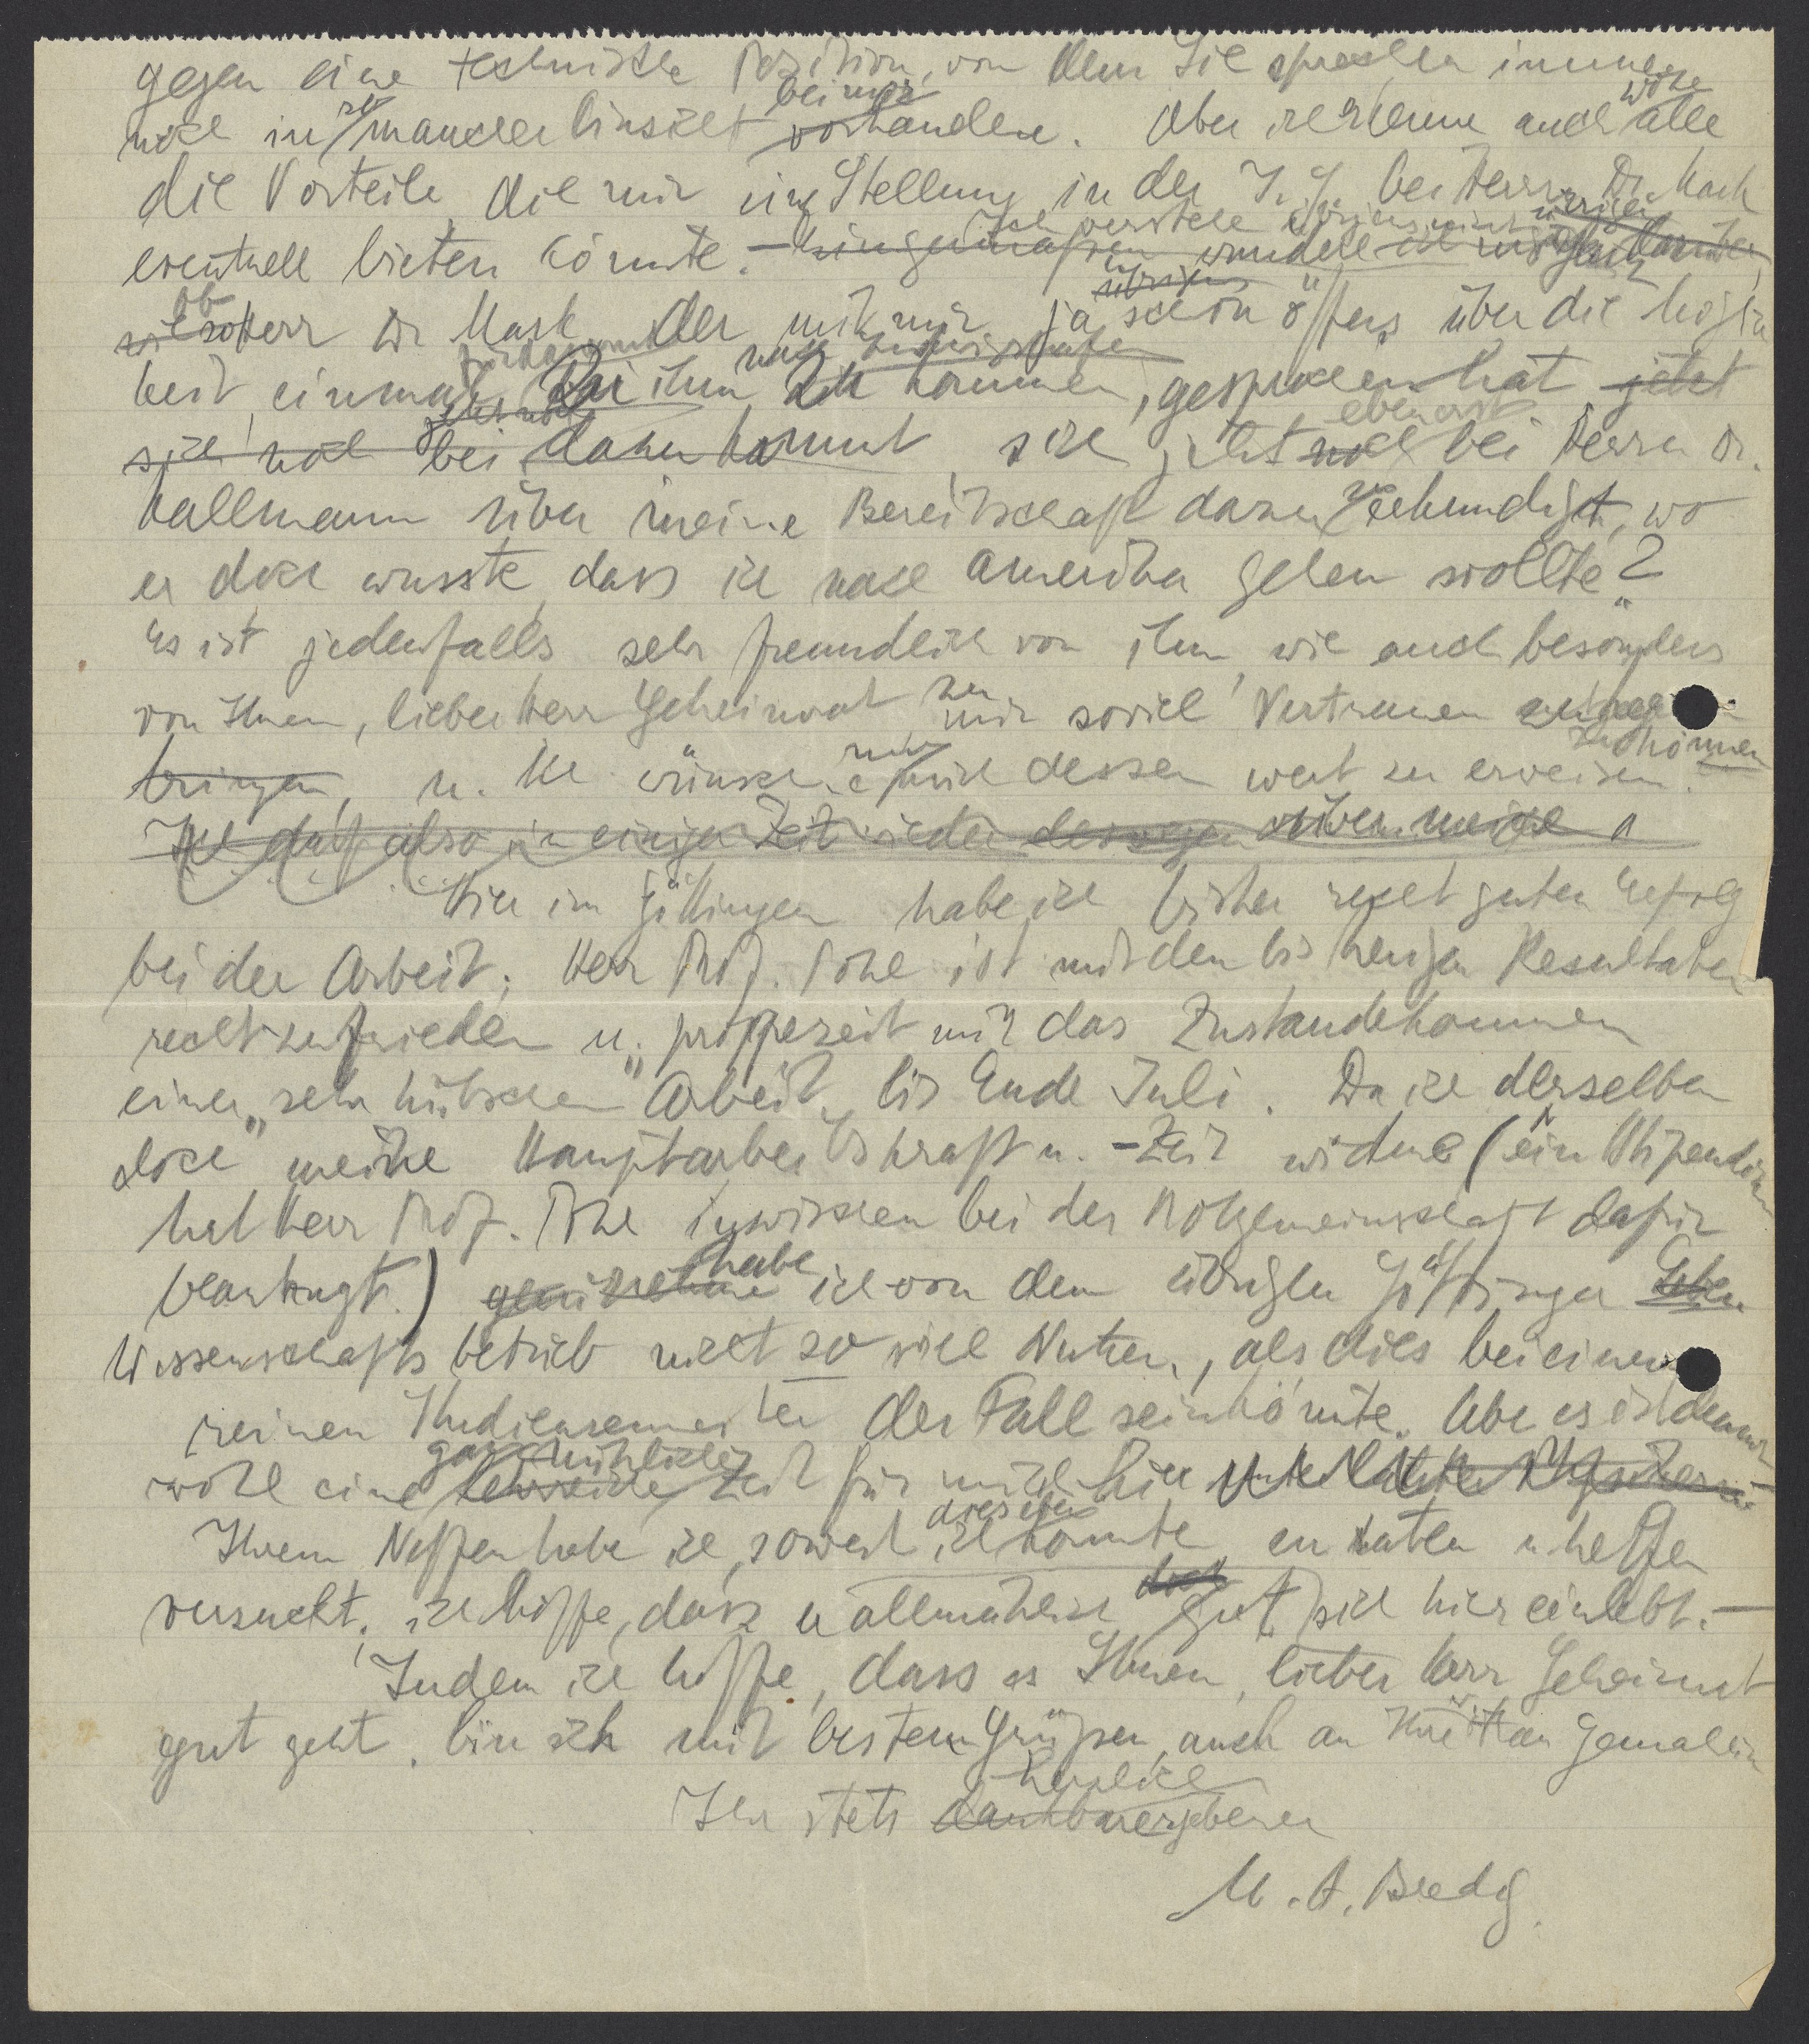 gegen eine technische Position, von dem Sie sprachen immer
noch in mancher Hinsicht bei mir vorhanden. Aber ich erkenne auch wohl alle
die Vorteile, die mir eine Stellung in der I. G. bei Herrn Dr. Mark
eventuell bieten könnte. – Ich verstehe übrigens nicht ganz
ob Herr Dr. Mark, der mit mir ja schon öfters über die Möglich
keit, einmal zu ihm nach Ludwigshafen zu kommen, gesprochen hat jetzt
sich noch bei dazu kommt sich jetzt noch eben erst bei Herrn Dr.
Kallmann über meine Bereitschaft dazu erkundigt, wo
er doch wusste, dass ich nach Amerika gehen wollte?
Es ist jedenfalls sehr freundlich von ihm, wie auch besonders
von Ihnen, lieber Herr Geheimrat mir soviel Vertrauen
bringen, u. ich wünsche nur mich dessen wert zu erweisen zu können.
Ich darf also in einiger Zeit wieder deswegen
Hier in Göttingen habe ich bisher recht guten Erfolg
bei der Arbeit; Herr Prof. Pohl ist mit den bisherigen Resultaten
recht zufrieden u. prophezeit mir das Zustandekommen
einer „sehr hübschen“ Arbeit bis Ende Juli. Da ich derselben
doch meine Hauptarbeitskraft u. -Zeit widme (ein Stipendium
hat Herr Prof. Pohl inzwischen bei der Notgemeinschaft dafür
beantragt.) habe ich von dem übrigen Göttinger Leben
Wissenschaftsbetrieb nicht so viel Nutzen, als dies bei einem
reinen Studiensemester der Fall sein könnte. Aber es ist dennoch
wohl eine ganz nützliche Zeit für mich hier
Ihrem Neffen habe ich, soweit ich dies eben konnte zu raten u. helfen
versucht; ich hoffe, dass er allmählich doch gut sich hier einlebt. –
Indem ich hoffe, dass es Ihnen, lieber Herr Geheimrat
gut geht, bin ich mit besten Grüßen, auch an Ihre Frau Gemahlin
Ihr stets dankbar herzlich ergebener
M. A. Bredig.